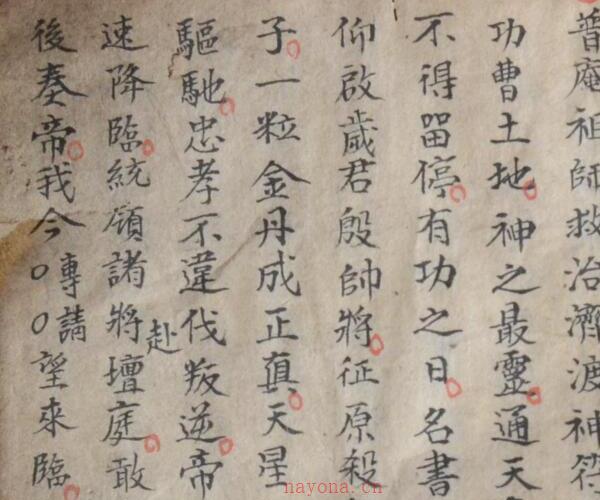 普庵祖師救治濟渡神符
功曹土地神之最靈通天
不得留停有功之日名書
仰啟歲君殷帥將征原殺
子一粒金丹成正真天星
驅馳忠孝不違伐叛逆帝
速降臨統領諸將赴壇庭敢
後奏帝我今〇〇專請望來臨
nayona.cn